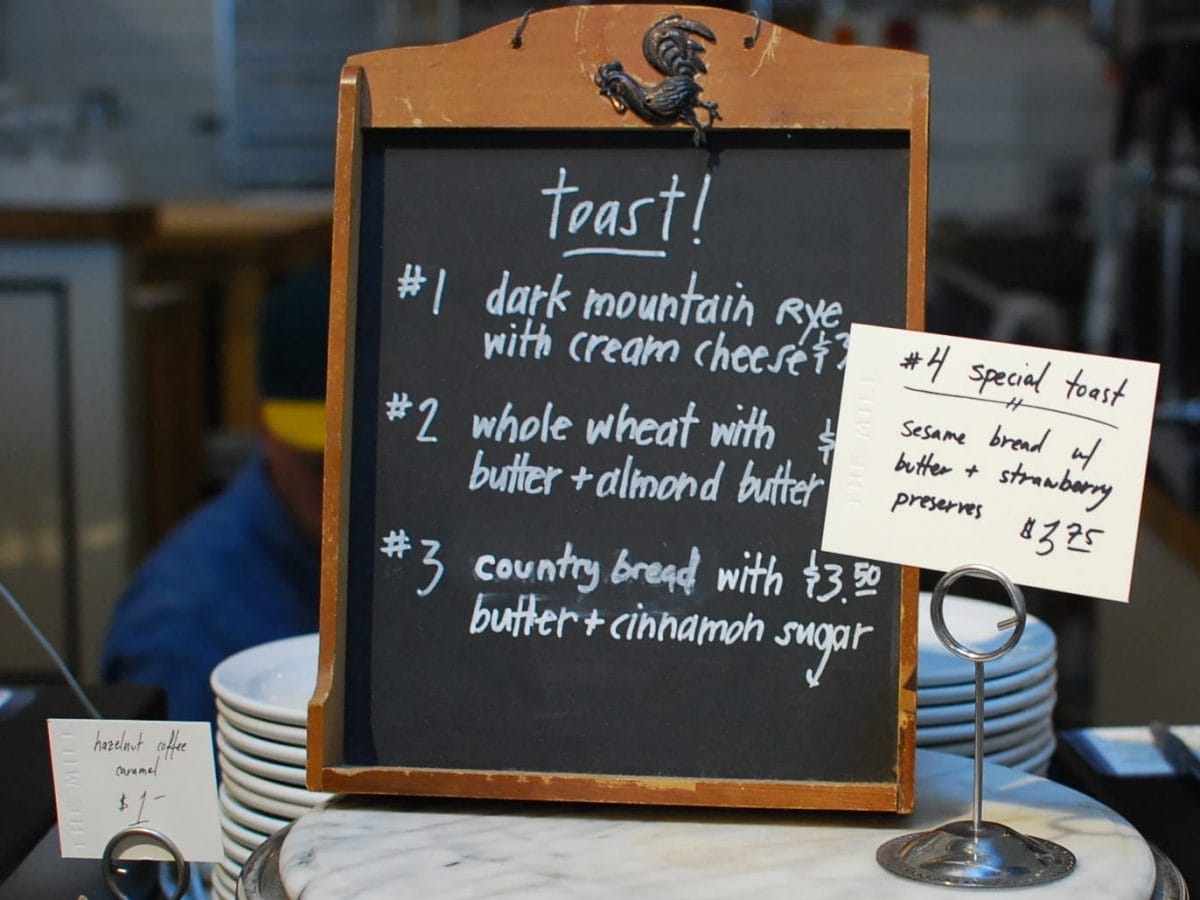 toast!
#1 dark mountain Rye
with cream cheese $3
#2 whole wheat with $
butter + almond butter
#3 country bread with $3.50
butter + cinnamon sugar
#4 special toast
sesame bread w/
butter + strawberry
preserves
$3.75
THE MILL
hazelnut coffee
caramel
$1-
THE MILL